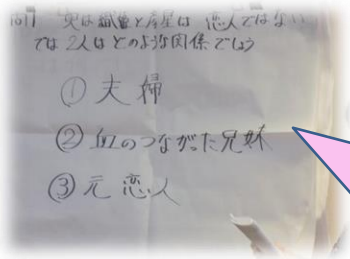 問 実は織姫と彦星は 恋人ではない
では2人はどのような関係でしょう
① 夫婦
② 血のつながった兄妹
③ 元恋人